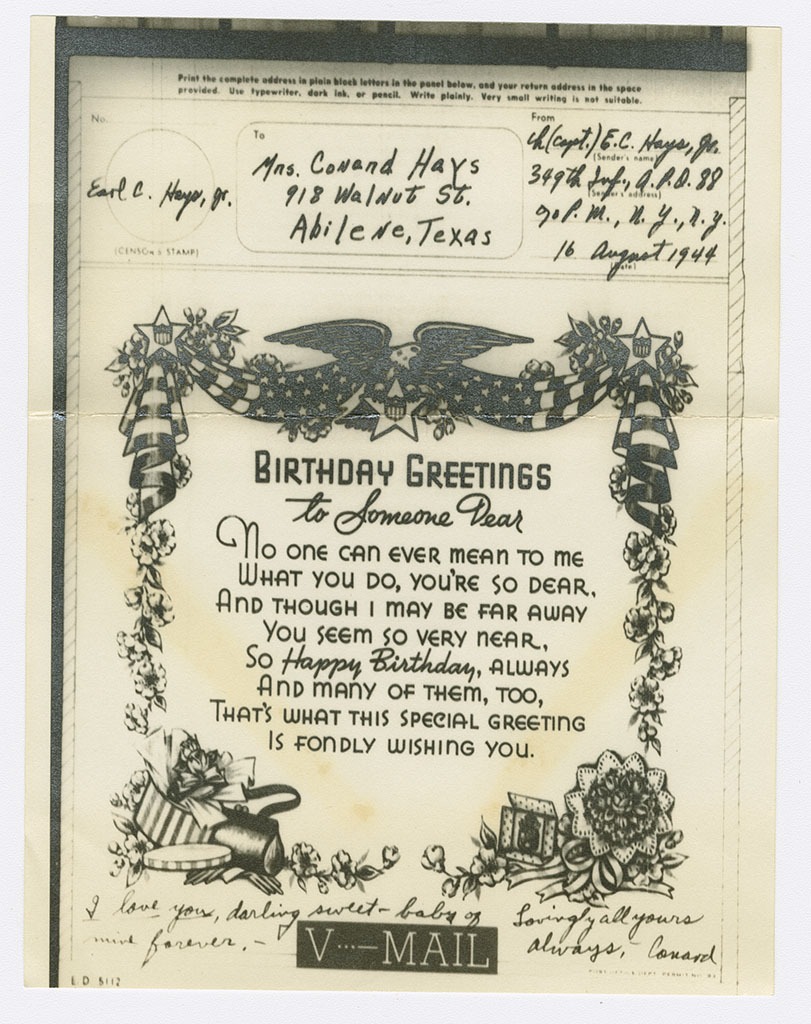 Print the complete address in plain block letters in the panel below, and your return address in the space
provided. Use typewriter, dark ink, or pencil. Write plainly. Very small writing is not suitable.
No.
Earl C. Hays, Jr.
(CENSOR'S STAMP)
To
Mrs. Conard Hays
918 Walnut St.
Abilene, Texas
From
Ch (Capt.) E.C. Hays, Jr.
(Sender's name)
349th Inf., A.P.O. 88
(Sender's address)
℅ P. M., N. Y., N. Y.
16 August 1944
(Date)
BIRTHDAY GREETINGS
to Someone Dear
NO ONE CAN EVER MEAN TO ME
WHAT YOU DO, YOU'RE SO DEAR,
AND THOUGH I MAY BE FAR AWAY
YOU SEEM SO VERY NEAR,
SO Happy Birthday, ALWAYS
AND MANY OF THEM, TOO,
THAT'S WHAT THIS SPECIAL GREETING
IS FONDLY WISHING YOU.
I love you, darling sweet-baby of
mine forever. -
Lovingly all yours
always, Conard
V···—MAIL
POST OFFICE DEPT. PERMIT NO.
E D 5112